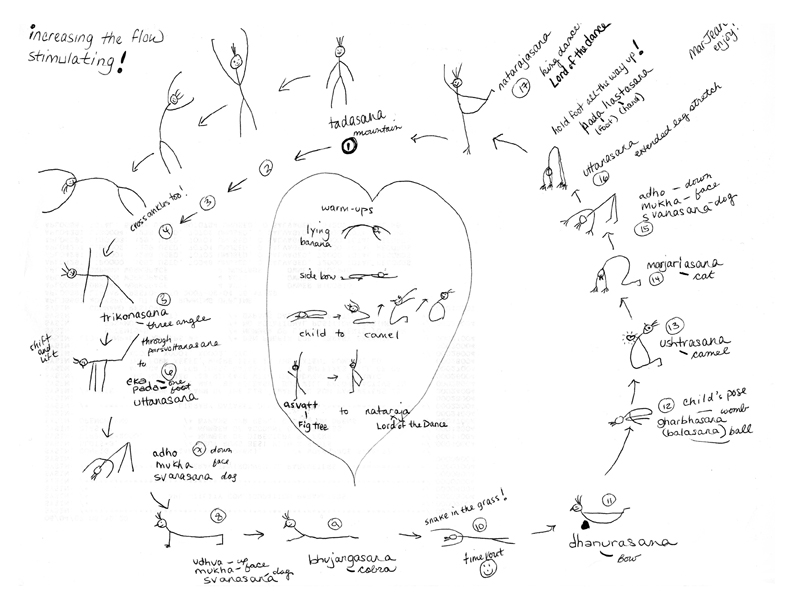 increasing the flow
stimulating!
MarJean
enjoy!
tadasana
mountain
1
2
3
cross ankles too!
4
5
trikonasana
three angle
shift
and
lift
through
parsvottanasana
to
6
eka - one
pada - foot
uttanasana
7
adho down
mukha face
svanasana dog
8
udhva - up
mukha - face
svanasana - dog
9
bhujangasana
cobra
snake in the grass!
10
time out
11
dhanurasana
bow
12 child's pose
gharbhasana womb
(balasana) ball
13
ushtrasana
camel
marjariasana
14 cat
adho - down
mukha - face
svanasana - dog
15
uttanasana
extended leg stretch
16
hold foot all the way up!
pada hastasana
(foot) (hand)
natarajasana
king dancer
Lord of the dance
17
warm-ups
lying
banana
side bow
child to camel
asvatt to nataraja
Fig tree Lord of the Dance